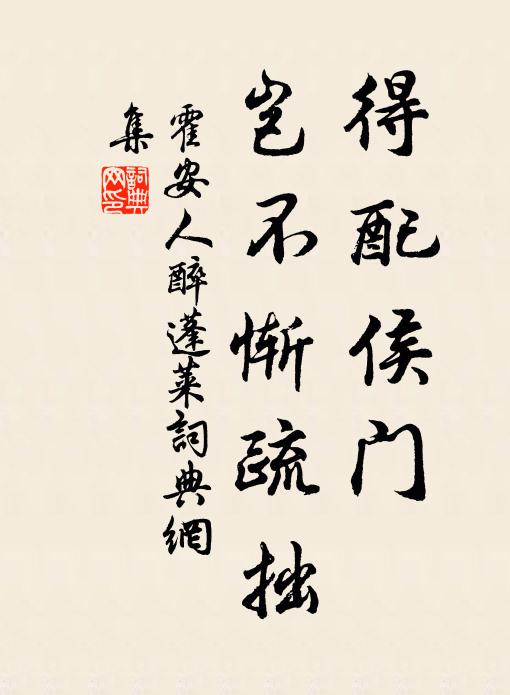 得配侯门
岂不惭疏拙
霍安人醉蓬莱词典网
集
词典
网印